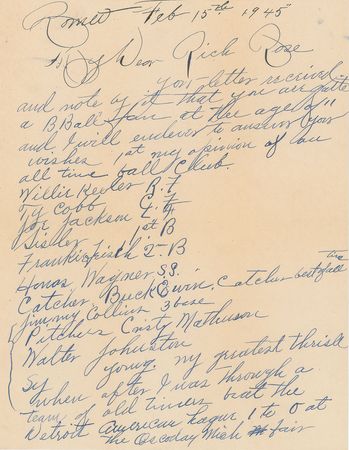 Romeo Feb 15th 1945
My Dear Rich Rose
your letter received
and note by it that you are quite
a B. Ball fan at the age of 11
and I will endever to answer your
wishes 1st my opinion of an
all time ball Club.
Willie Keeler R. F
Ty Cobb C. F
Joe Jackson L. F
Sisler 1st B
Frankie Frisch 2-B
Honos Wagner S.S.
Catcher, Buck Ewin, Catcher best of all time
Jimmy Collins 3 base
Pitchers Cristy Mathuson
Walter Johnston
Sy young. my greatest thrill
when after I was through a
team of old timers beat the
Detroit American league 1 to 0 at
the Oscoday Mich fair